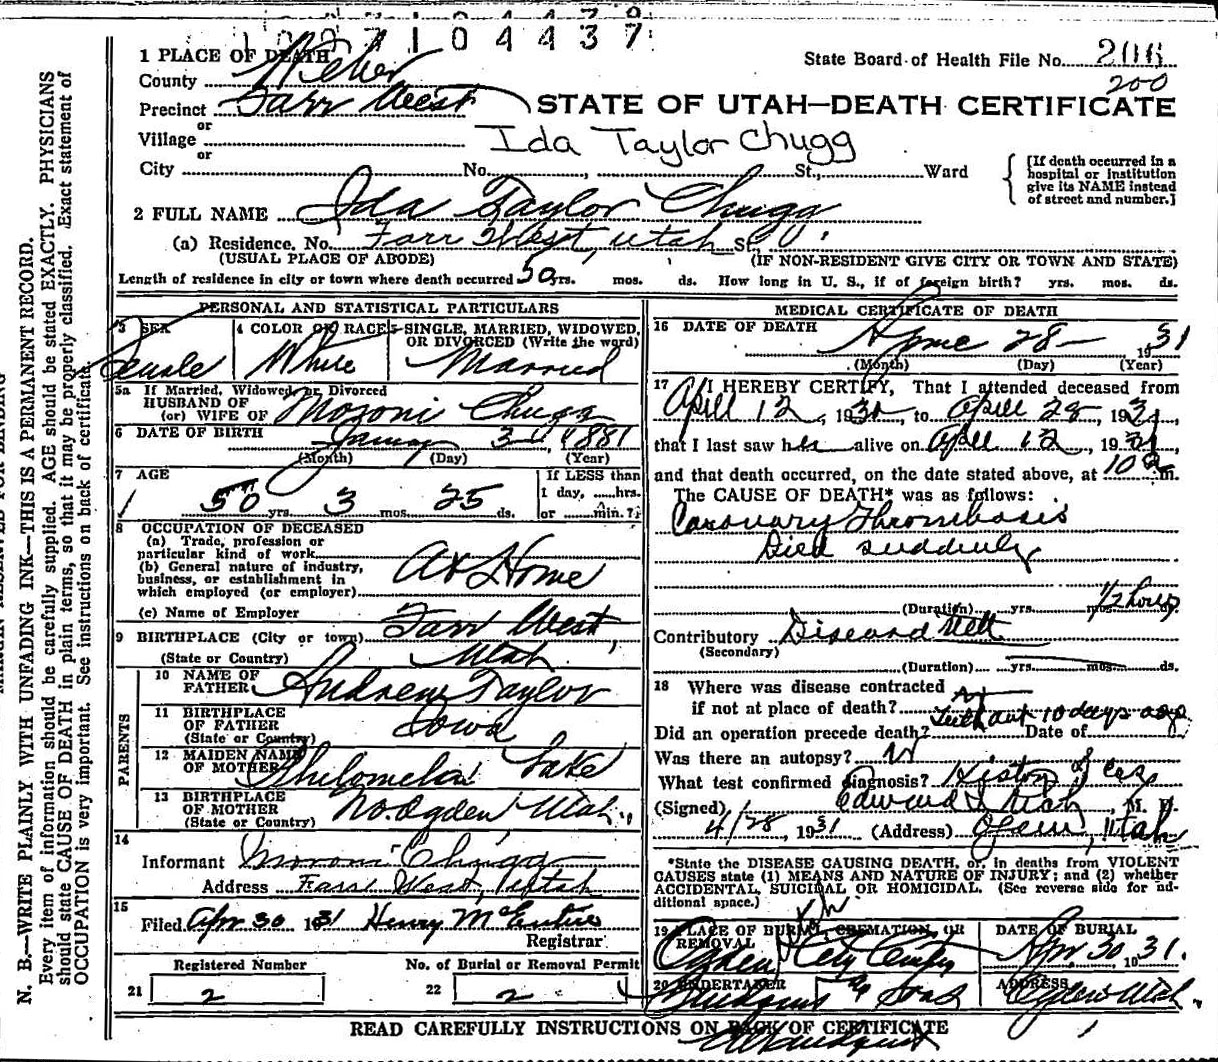 1 0 0 7 1 0 4 4 3 7
1 PLACE OF DEATH
State Board of Health File No. 206
200
County Weber
Precinct Farr West
STATE OF UTAH—DEATH CERTIFICATE
or
Village
Ida Taylor Chugg
or
City No. , St., Ward
[If death occurred in a hospital or institution give its NAME instead of street and number.]
2 FULL NAME Ida Taylor Chugg
(a) Residence, No. Farr West, Utah St.,
(USUAL PLACE OF ABODE) (IF NON-RESIDENT GIVE CITY OR TOWN AND STATE)
Length of residence in city or town where death occurred 50 yrs. mos. ds. How long in U. S., if of foreign birth? yrs. mos. ds.
PERSONAL AND STATISTICAL PARTICULARS
3 SEX 4 COLOR OR RACE 5 SINGLE, MARRIED, WIDOWED, OR DIVORCED (Write the word)
Female White Married
5a If Married, Widowed, or Divorced
HUSBAND OF
(or) WIFE OF Moroni Chugg
6 DATE OF BIRTH January 3 1881
(Month) (Day) (Year)
7 AGE If LESS than
1 day, ......hrs.
50 yrs. 3 mos. 25 ds. or ......min.?
8 OCCUPATION OF DECEASED
(a) Trade, profession or
particular kind of work
(b) General nature of industry,
business, or establishment in
which employed (or employer)
At Home
(c) Name of Employer
9 BIRTHPLACE (City or town) Farr West,
(State or Country) Utah
PARENTS
10 NAME OF FATHER Andrew Taylor
11 BIRTHPLACE OF FATHER (State or Country) Iowa
12 MAIDEN NAME OF MOTHER Philomela Lake
13 BIRTHPLACE OF MOTHER (State or Country) No. Ogden Utah.
14
Informant Moroni Chugg
Address Farr West, Utah
15
Filed Apr 30 1931 Henry McEntire
Registrar
Registered Number No. of Burial or Removal Permit
21 2 22 2
MEDICAL CERTIFICATE OF DEATH
16 DATE OF DEATH April 28 1931
(Month) (Day) (Year)
17 I HEREBY CERTIFY, That I attended deceased from
April 12, 1931, to April 28, 1931,
that I last saw her alive on April 12, 1931,
and that death occurred, on the date stated above, at 10 a m.
The CAUSE OF DEATH* was as follows:
Coronary Thrombosis
Died suddenly
(Duration) yrs. mos. 1/2 hour
Contributory
(Secondary)
(Duration) yrs. mos. ds.
18 Where was disease contracted
if not at place of death?
Did an operation precede death? Teeth out 10 days ago Date of
Was there an autopsy?
What test confirmed diagnosis? History of case
(Signed) Edward , M. D.
4/28, 1931 (Address) Ogden, Utah
*State the DISEASE CAUSING DEATH, or, in deaths from VIOLENT
CAUSES state (1) MEANS AND NATURE OF INJURY; and (2) whether
ACCIDENTAL, SUICIDAL OR HOMICIDAL. (See reverse side for additional space.)
19 PLACE OF BURIAL, CREMATION, OR REMOVAL DATE OF BURIAL
Ogden City Utah Apr. 30 1931.
20 UNDERTAKER ADDRESS
& Sons Ogden Utah.
READ CAREFULLY INSTRUCTIONS ON BACK OF CERTIFICATE
N. B.—WRITE PLAINLY WITH UNFADING INK—THIS IS A PERMANENT RECORD.
Every item of information should be carefully supplied. AGE should be stated EXACTLY. PHYSICIANS
should state CAUSE OF DEATH in plain terms, so that it may be properly classified. Exact statement of
OCCUPATION is very important. See instructions on back of certificate.